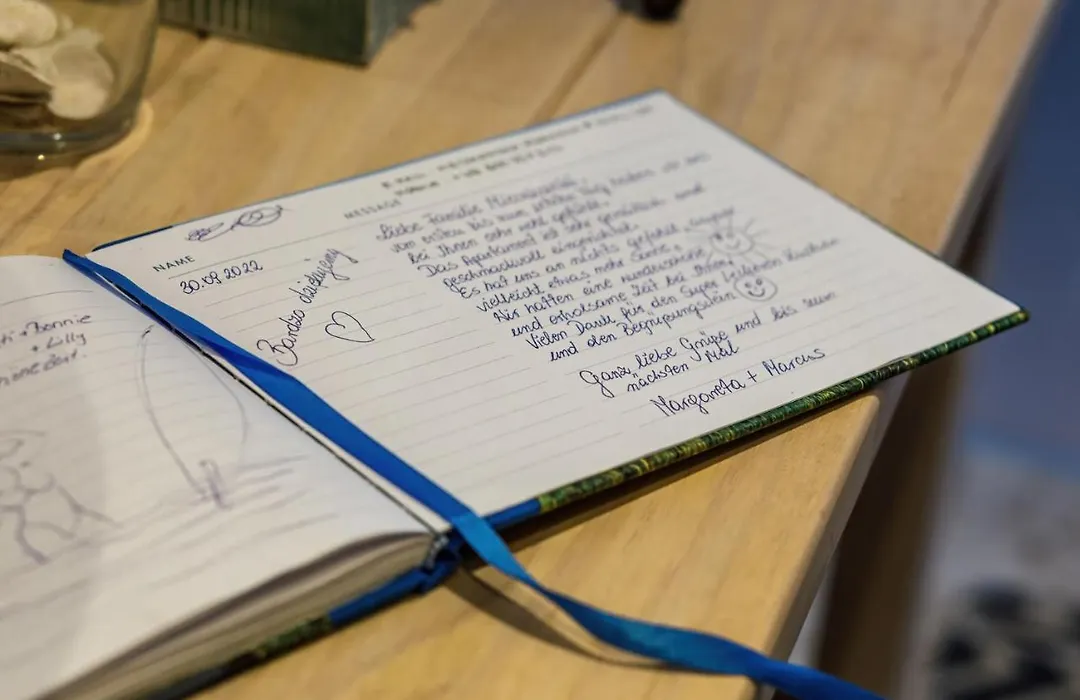 MESSAGE
NAME
30.09.2022
Bardzo dziękujemy
Liebe Familie
vom ersten bis zum
bei Ihnen sehr wohl gefühlt.
Das Apartament ist sehr gemütlich und
geschmackvoll eingerichtet.
Es hat uns an nichts gefehlt,
vielleicht etwas mehr Sonne.
Wir hatten eine wunderschöne
und erholsame Zeit bei Ihnen.
Vielen Dank für den super leckeren Kuchen
und den Begrüßungswein
Ganz liebe Grüße und bis zum
nächsten Mal
Margareta + Marcus
+ Bonnie
+ Lilly